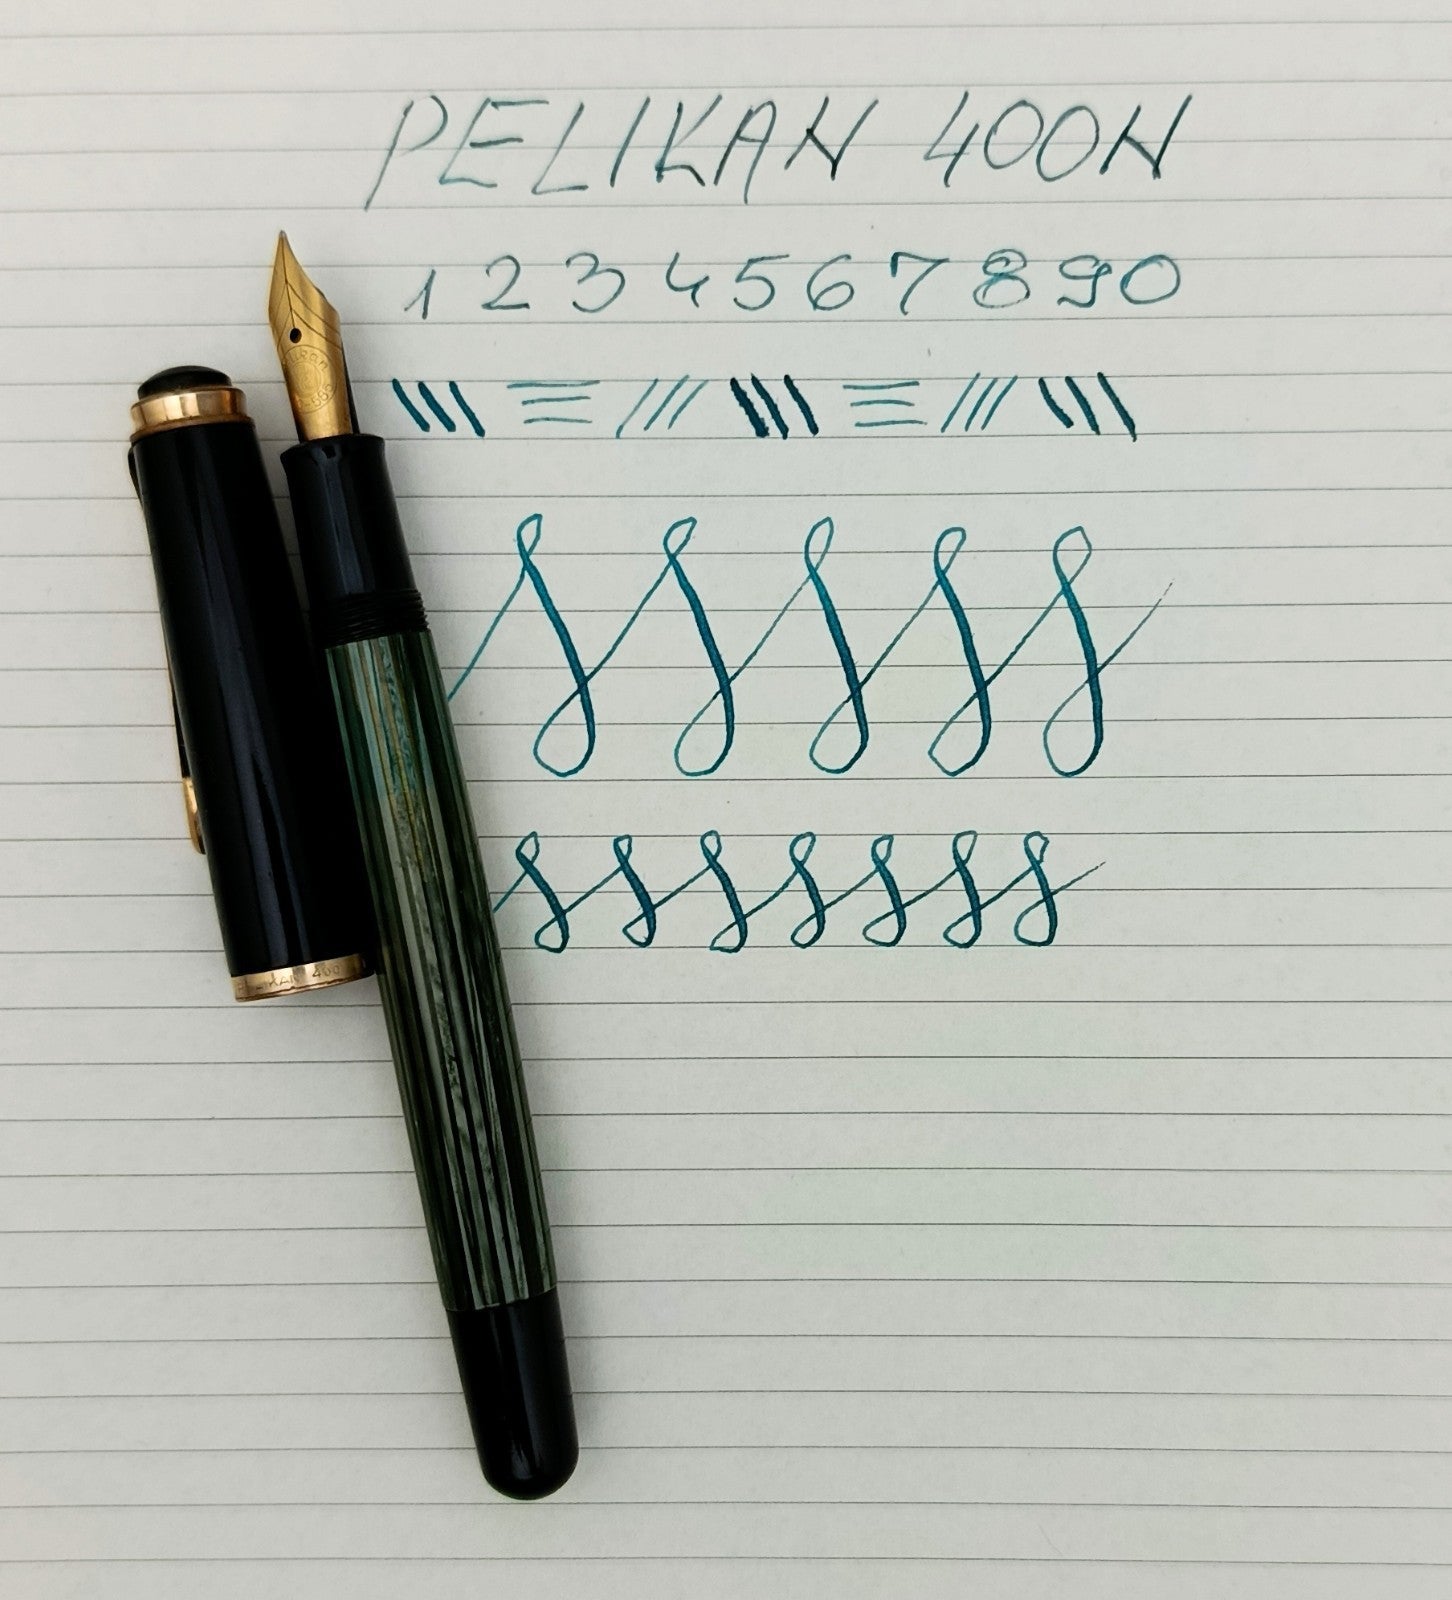 PELIKAN 400N
1 2 3 4 5 6 7 8 9 0
PELIKAN 400